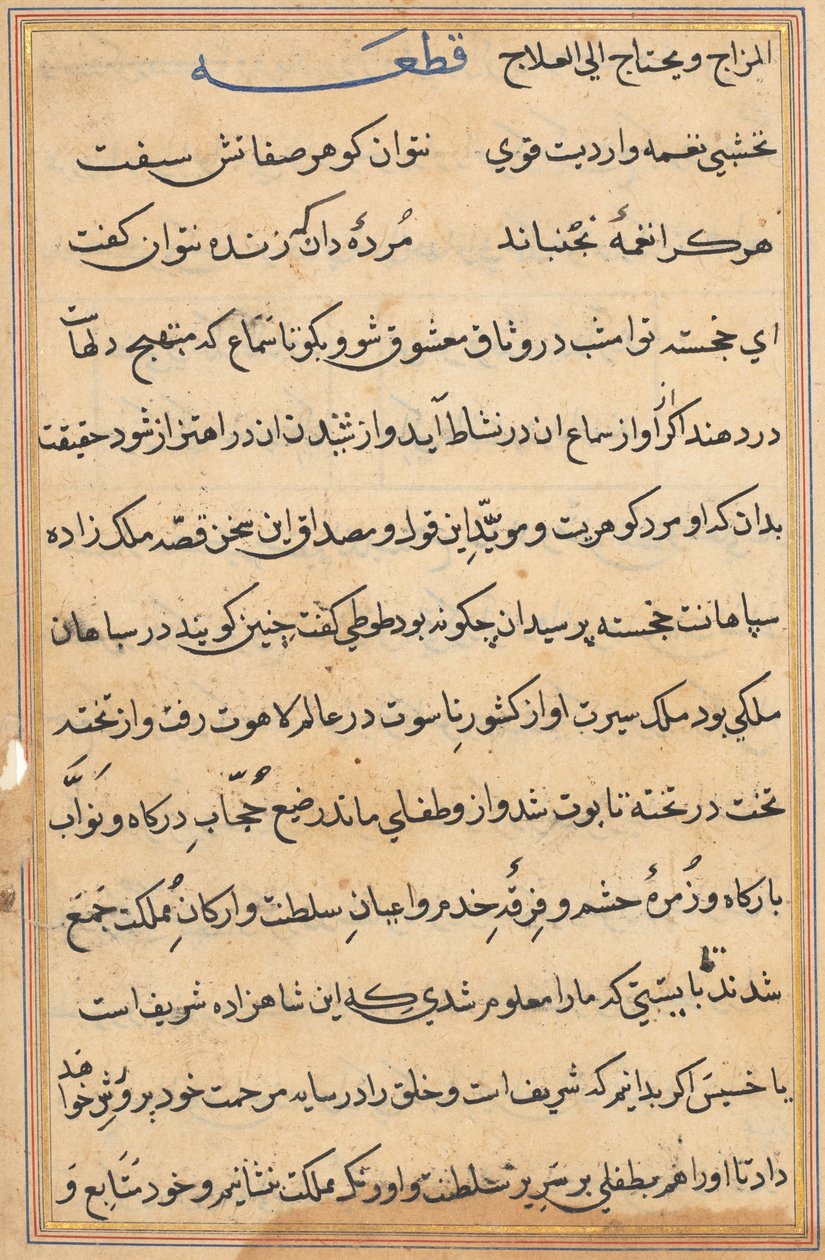 المزاج و یحتاج الي العلاج قطعه
نخشبي نغمه واردیت قوي نتوان کوهر صفاتش سفت
هر کرا نغمهٔ نجُنباند مُردهٔ دان که زنده نتوان کفت
اي خجسته توامشب در وثاق معشوق شو و بکو تا سَماع که منتهج دلهاست
در دهند اکر از آواز سماع ان در نشاط آید و از شنیدن ان در اهتزاز شود حقیقت
بدان که او مرد کوهریت و مویّدِ این قول و مصداق این سخن قصّه ملک زاده
سپاهانت خجسته پرسید ان چکونه بود طوطي کفت چنین کویند در سپاهان
ملکي بود ملک سیرت او از کشورِ ناسوت در عالم لاهوت رفت و از تخته
تخت در تختهٔ تابوت شد و از و طفلي ماند رضیع حُجّابِ درکاه و نَوّاب
بارکاه و زُمرهٔ حشم و فِرقُهِ خدم و اعیانِ سلطنت و ارکانِ مُملکت جَمع
شدند بایستي که مارا معلوم شدي که این شاهزاده شریف است
یا خسیس اکر بدانیم که شریف است و خلق را در سایه مرحمت خود پروَرِش خواهد
داد تا اورا هم بطفلي بر سَرِیر سلطنت و اورنک مملکت نشانیم و خود مَتَابع وَ